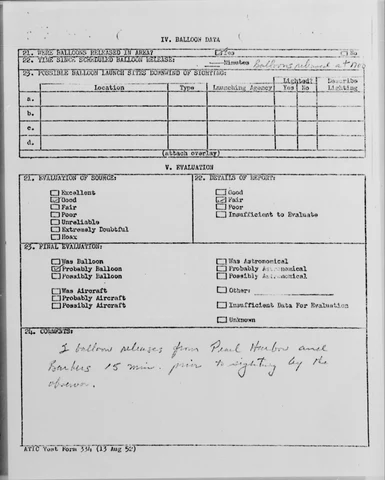 IV. BALLOON DATA
21. WERE BALLOONS RELEASED IN AREA? Yes No
22. TIME SINCE SCHEDULED BALLOON RELEASE: Minutes Balloons released at
23. POSSIBLE BALLOON LAUNCH SITES DOWNWIND OF SIGHTING: Lighted? Describe
Location Type Launching Agency Yes No Lighting
a.
b.
c.
d.
(attach overlay)
V. EVALUATION
21. EVALUATION OF SOURCE: 22. DETAILS OF REPORT:
Excellent Good
Good Fair
Fair Poor
Poor Insufficient to Evaluate
Unreliable
Extremely Doubtful
Hoax
23. FINAL EVALUATION:
Was Balloon Was Astronomical
Probably Balloon Probably Astronomical
Possibly Balloon Possibly Astronomical
Was Aircraft Other:
Probably Aircraft
Possibly Aircraft Insufficient Data For Evaluation
Unknown
24. COMMENTS:
2 balloon releases from Pearl Harbor and
Barbers 15 min. prior to sighting by the
observor.
ATIC Form 334 (13 Aug 52)